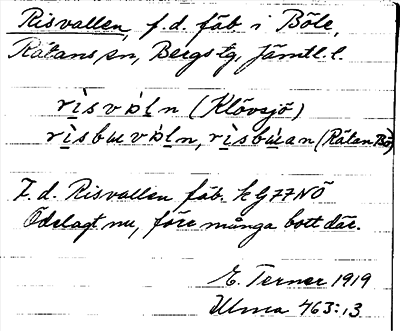 Risvallen, f.d. fäb. i Böle,
Rätans sn, Bergs tg, Jämtl. l.
rìsvàln (Klövsjö)
rìsbuvàln, rìsbùan (Rätan Bö)
F.d. Risvallen fäb. kG77NÖ
Ödelagt nu, före många bott där.
E. Terner 1919
Ulma 463:13